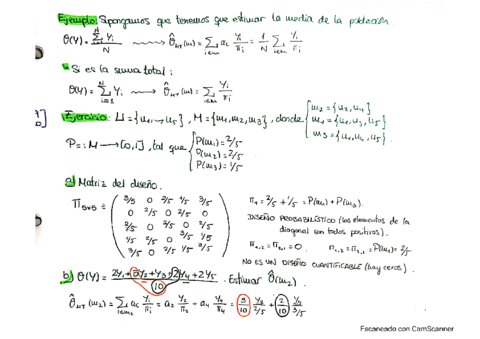 Ejemplo: Supongamos que tenemos que estimar la media de la población.
θ(Y) = Σ_{i=1}^{N} Yi / N ⟿ θ̂_HT(m) = Σ_{i∈m} ai Yi/πi = 1/N Σ_{i∈m} Yi/πi
Si es la suma total:
θ(Y) = Σ_{i=1}^{N} Yi ⟿ θ̂_HT(m) = Σ_{i∈m} Yi/πi
Ejercicio: U = {u1, ..., u5}, M = {m1, m2, m3}, donde
m2 = {u2, u4}
m1 = {u1, u3, u5}
m3 = {u1, u4, u5}
P =: M → [0,1], tal que
P(m1) = 2/5
P(m2) = 2/5
P(m3) = 1/5
a) Matriz del diseño.
Π5x5 =
3/5 0 2/5 1/5 3/5
0 2/5 0 2/5 0
2/5 0 2/5 0 2/5
1/5 2/5 0 3/5 1/5
3/5 0 2/5 1/5 3/5
π1 = 2/5 + 1/5 = P(m1) + P(m3).
DISEÑO PROBABILÍSTICO (los elementos de la
diagonal son todos positivos).
π1,2 = π2,1 = 0. π1,3 = π3,1 = P(m1) = 2/5
NO ES UN DISEÑO CUANTIFICABLE (hay ceros).
b) θ(Y) = 2Y1 + 3Y2 + Y3 + 2Y4 + 2Y5 / 10 . Estimar θ̂(m2)
θ̂_HT(m2) = Σ_{i∈m2} ai Yi/πi = a2 Y2/π2 + a4 Y4/π4 = 3/10 Y2/2/5 + 2/10 Y4/3/5
Escaneado con CamScanner